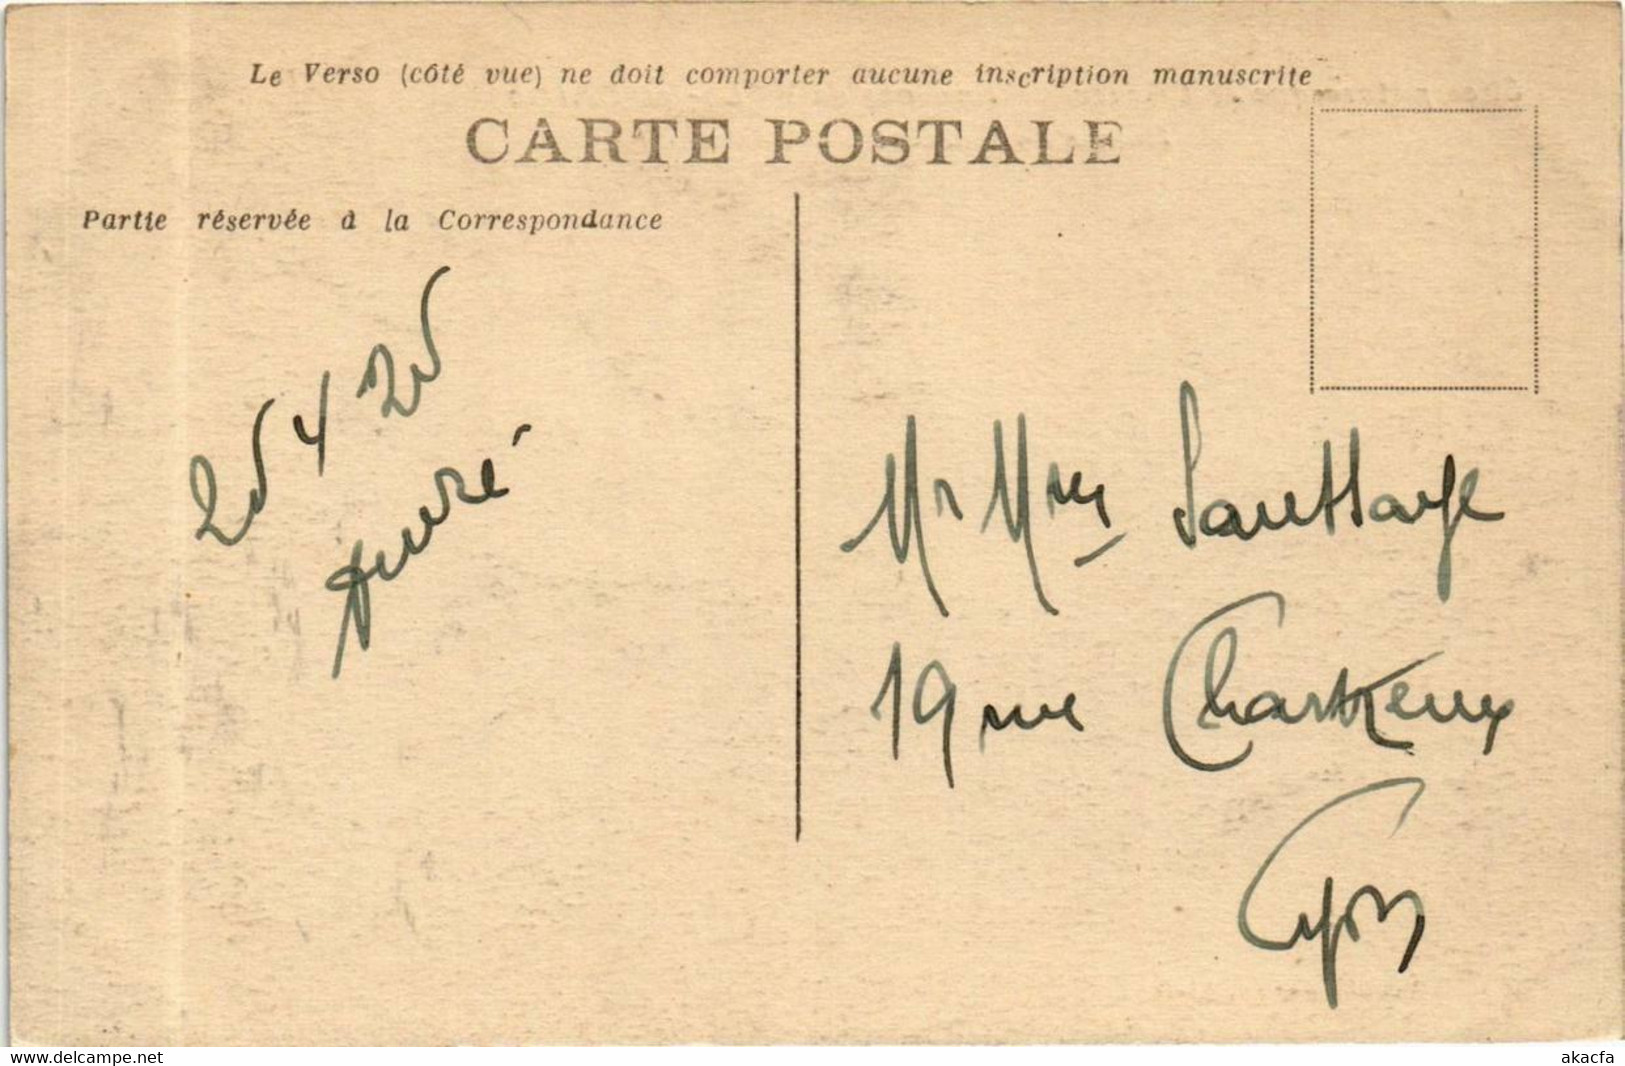 Le Verso (côté vue) ne doit comporter aucune inscription manuscrite
CARTE POSTALE
Partie réservée à la Correspondance
25 4 25
Mr Mme
19 rue Chartreux
Lyon
www.delcampe.net
akacfa